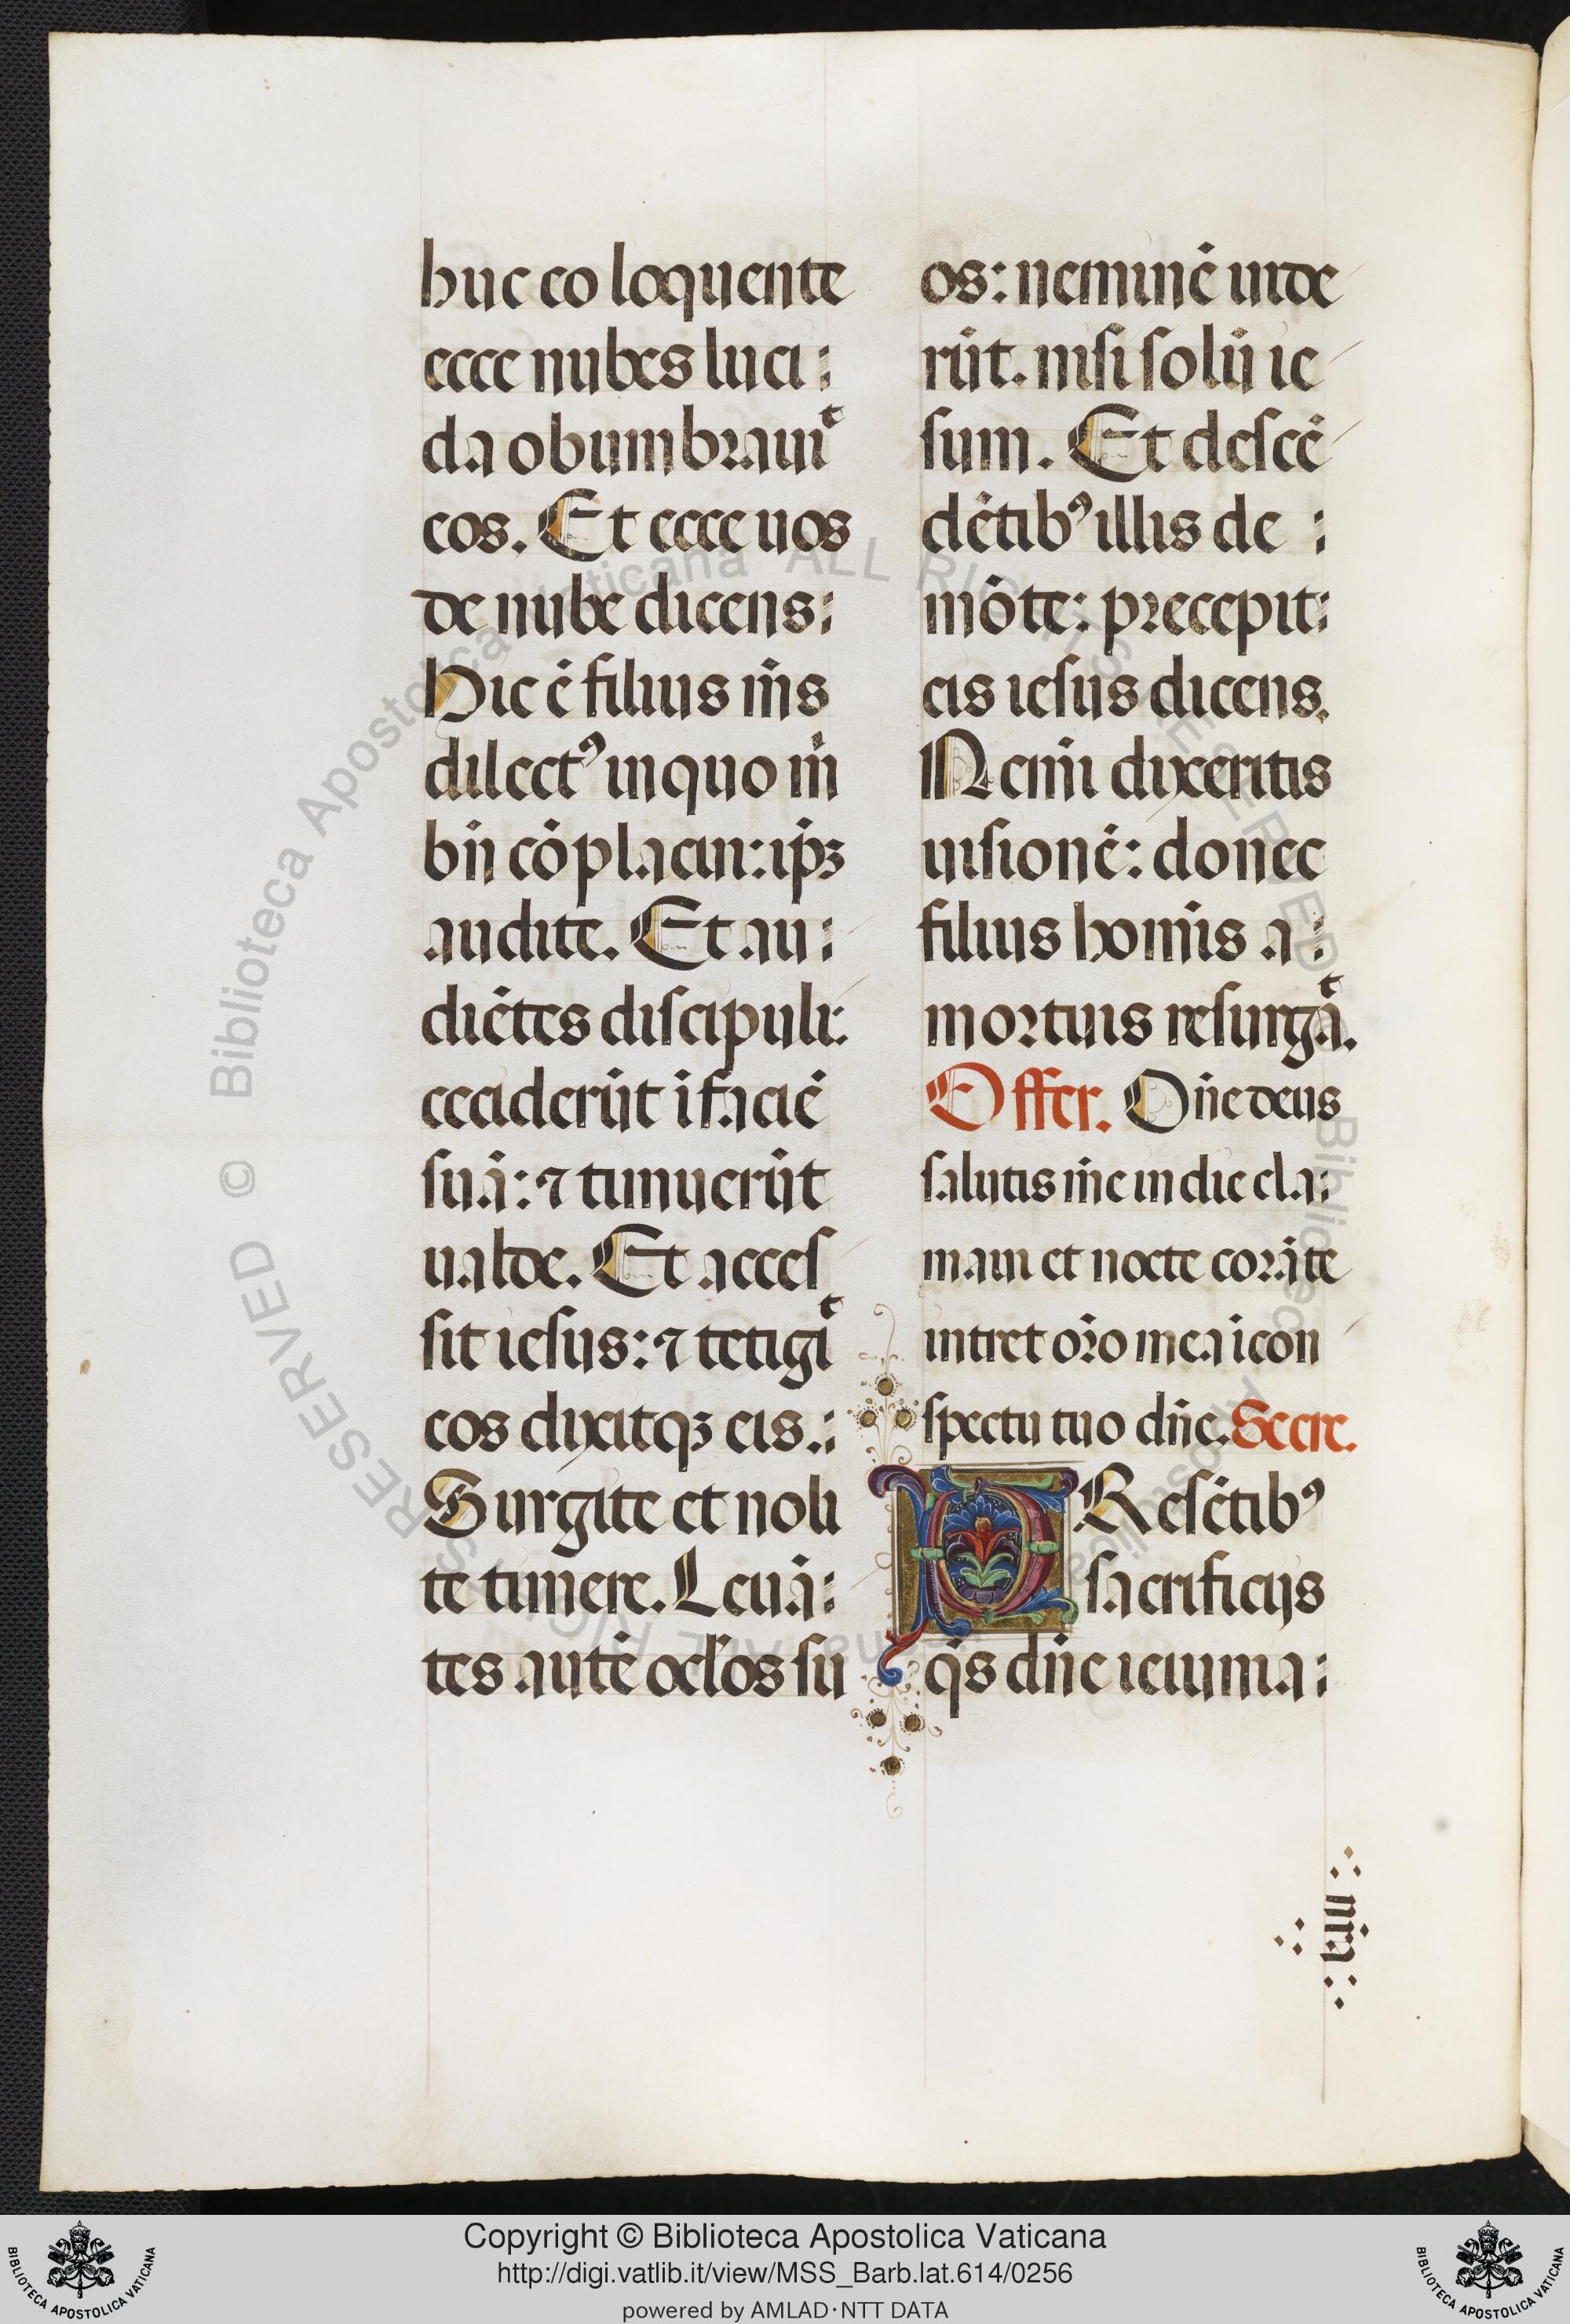 huc eo loquente
ecce nubes luci
da obumbrauit
eos. Et ecce uos
de nube dicens:
Hic ē filius m̄s
dilectꝰ in quo m̄
bn̄ cōplacui: ipꝫ
audite. Et au
diētes discipuli:
ceciderūt ī faciē
suā: ⁊ timuerūt
ualde. Et acces
sit iesus: ⁊ tetigit
eos dixitqꝫ eis.
Surgite et noli
te timere. Leuā
tes autē ocl̄os su
os: neminē uide
rūt. nisi solū ie
sum. Et descē
dētibꝰ illis de
mōte: precepit
eis iesus dicens.
Nemī dixeritis
uisionē: donec
filius homīs a
mortuis resurgāt.
Offer. Dn̄e deus
salutis m̄e in die cla
maui et nocte corā te
intret or̄o mea ī con
spectu tuo dn̄e. Secre.
PResētibꝰ
sacrificijs
q̄s dn̄e ieiunia
© Biblioteca Apostolica Vaticana ALL RIGHTS RESERVED
Copyright © Biblioteca Apostolica Vaticana
http://digi.vatlib.it/view/MSS_Barb.lat.614/0256
powered by AMLAD·NTT DATA
BIBLIOTECA APOSTOLICA VATICANA
BIBLIOTECA APOSTOLICA VATICANA